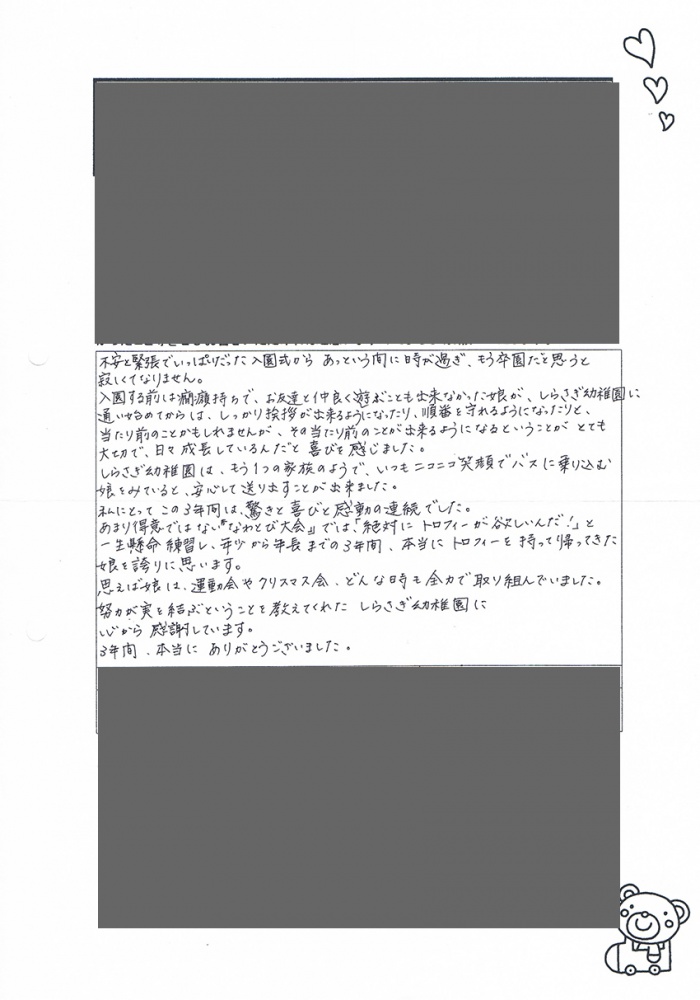 不安と緊張でいっぱいだった入園式から あっという間に時が過ぎ、もう卒園だと思うと
寂しくてなりません。
入園する前は癇癪持ちで、お友達と仲良く遊ぶことも出来なかった娘が、しらさぎ幼稚園に
通い始めてからは、しっかり挨拶が出来るようになったり、順番を守れるようになったりと、
当たり前のことかもしれませんが、その当たり前のことが出来るようになるということが とても
大切で、日々成長しているんだと 喜びを感じました。
しらさぎ幼稚園は、もう1つの家族のようで、いつもニコニコ笑顔でバスに乗り込む
娘をみていると、安心して送り出すことが出来ました。
私にとって この3年間は、驚きと喜びと感動の連続でした。
あまり得意ではない"なわとび大会"では、「絶対に トロフィーが欲しいんだ!」と
一生懸命 練習し、年少から年長までの3年間、本当に トロフィーを 持って帰ってきた
娘を誇りに思います。
思えば娘は、運動会やクリスマス会、どんな時も全力で取り組んでいました。
努力が実を結ぶということを教えてくれた しらさぎ幼稚園に
心から 感謝しています。
3年間、本当に ありがとうございました。